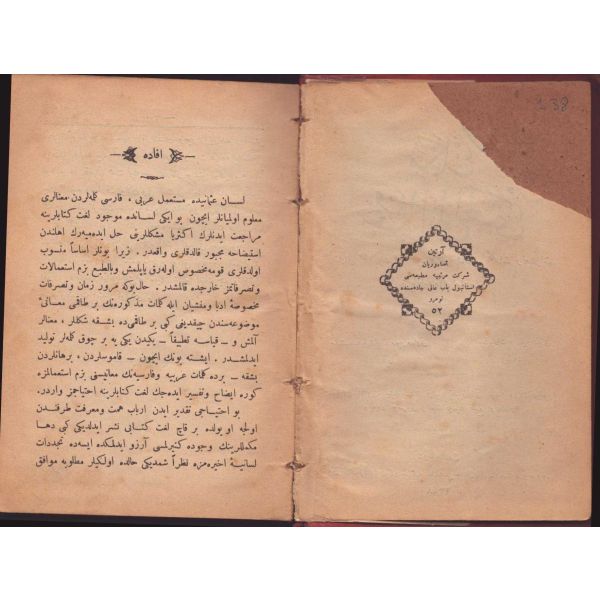 138
آرتین
آصادوریان
شرکت مرتبیه مطبعه‌سی
استانبول باب عالی جاده‌سنده
نومرو
٥٢
افاده
لسان عثمانیده مستعمل عربی ، فارسی کله‌لردن معنالری
معلوم اولمیانلر ایچون بو ایکی لسانده موجود لغت کتابلرینه
مراجعت ایدنلرك اکثریا مشکلرینی حل ایده‌میه‌رك اهلندن
استیضاحه مجبور قالدقلری واقعدر. زیرا بونلر اساساً منسوب
اولدقلری قومه‌مخصوص اوله‌رق یاپلمش وبالطبع بزم استعمالات
وتصرفاتمز خارجده قالمشدر . حال‌بوکه مرور زمان وتصرفات
مخصوصهٔ ادبا ومنشیان ایله کلمات مذکوره‌نك بر طاقمی معانیٔ
موضوعه‌سندن چیقدینی کبی بر طاقمی‌ده بشقه شکللر ، معنالر
آلمش و ـ قیاسه تطبیقاً ـ یکیدن یکی یه بر چوق کله‌لر تولید
ایدلمشدر . ایشته بونك ایچون ـ قاموسلردن ، برهانلردن
بشقه ـ برده کلمات عربیه وفارسیه‌نك معانیسنی بزم استعمالمزه
کوره ایضاح وتفسیر ایده‌جك لغت کتابلرینه احتیاجمز واردر.
بو احتیاجی تقدیر ایدن ارباب همت ومعرفت طرفندن
اولجه او یولده بر قاچ لغت کتابی نشر ایدلدیکی کبی دها
مکمللرینك وجوده کتیرلمسی آرزو ایدلمکده ایسه‌ده تجددات
لسانیهٔ اخیره‌مزه نظراً شمدیکی حالده اولکیلر مطلوبه موافق